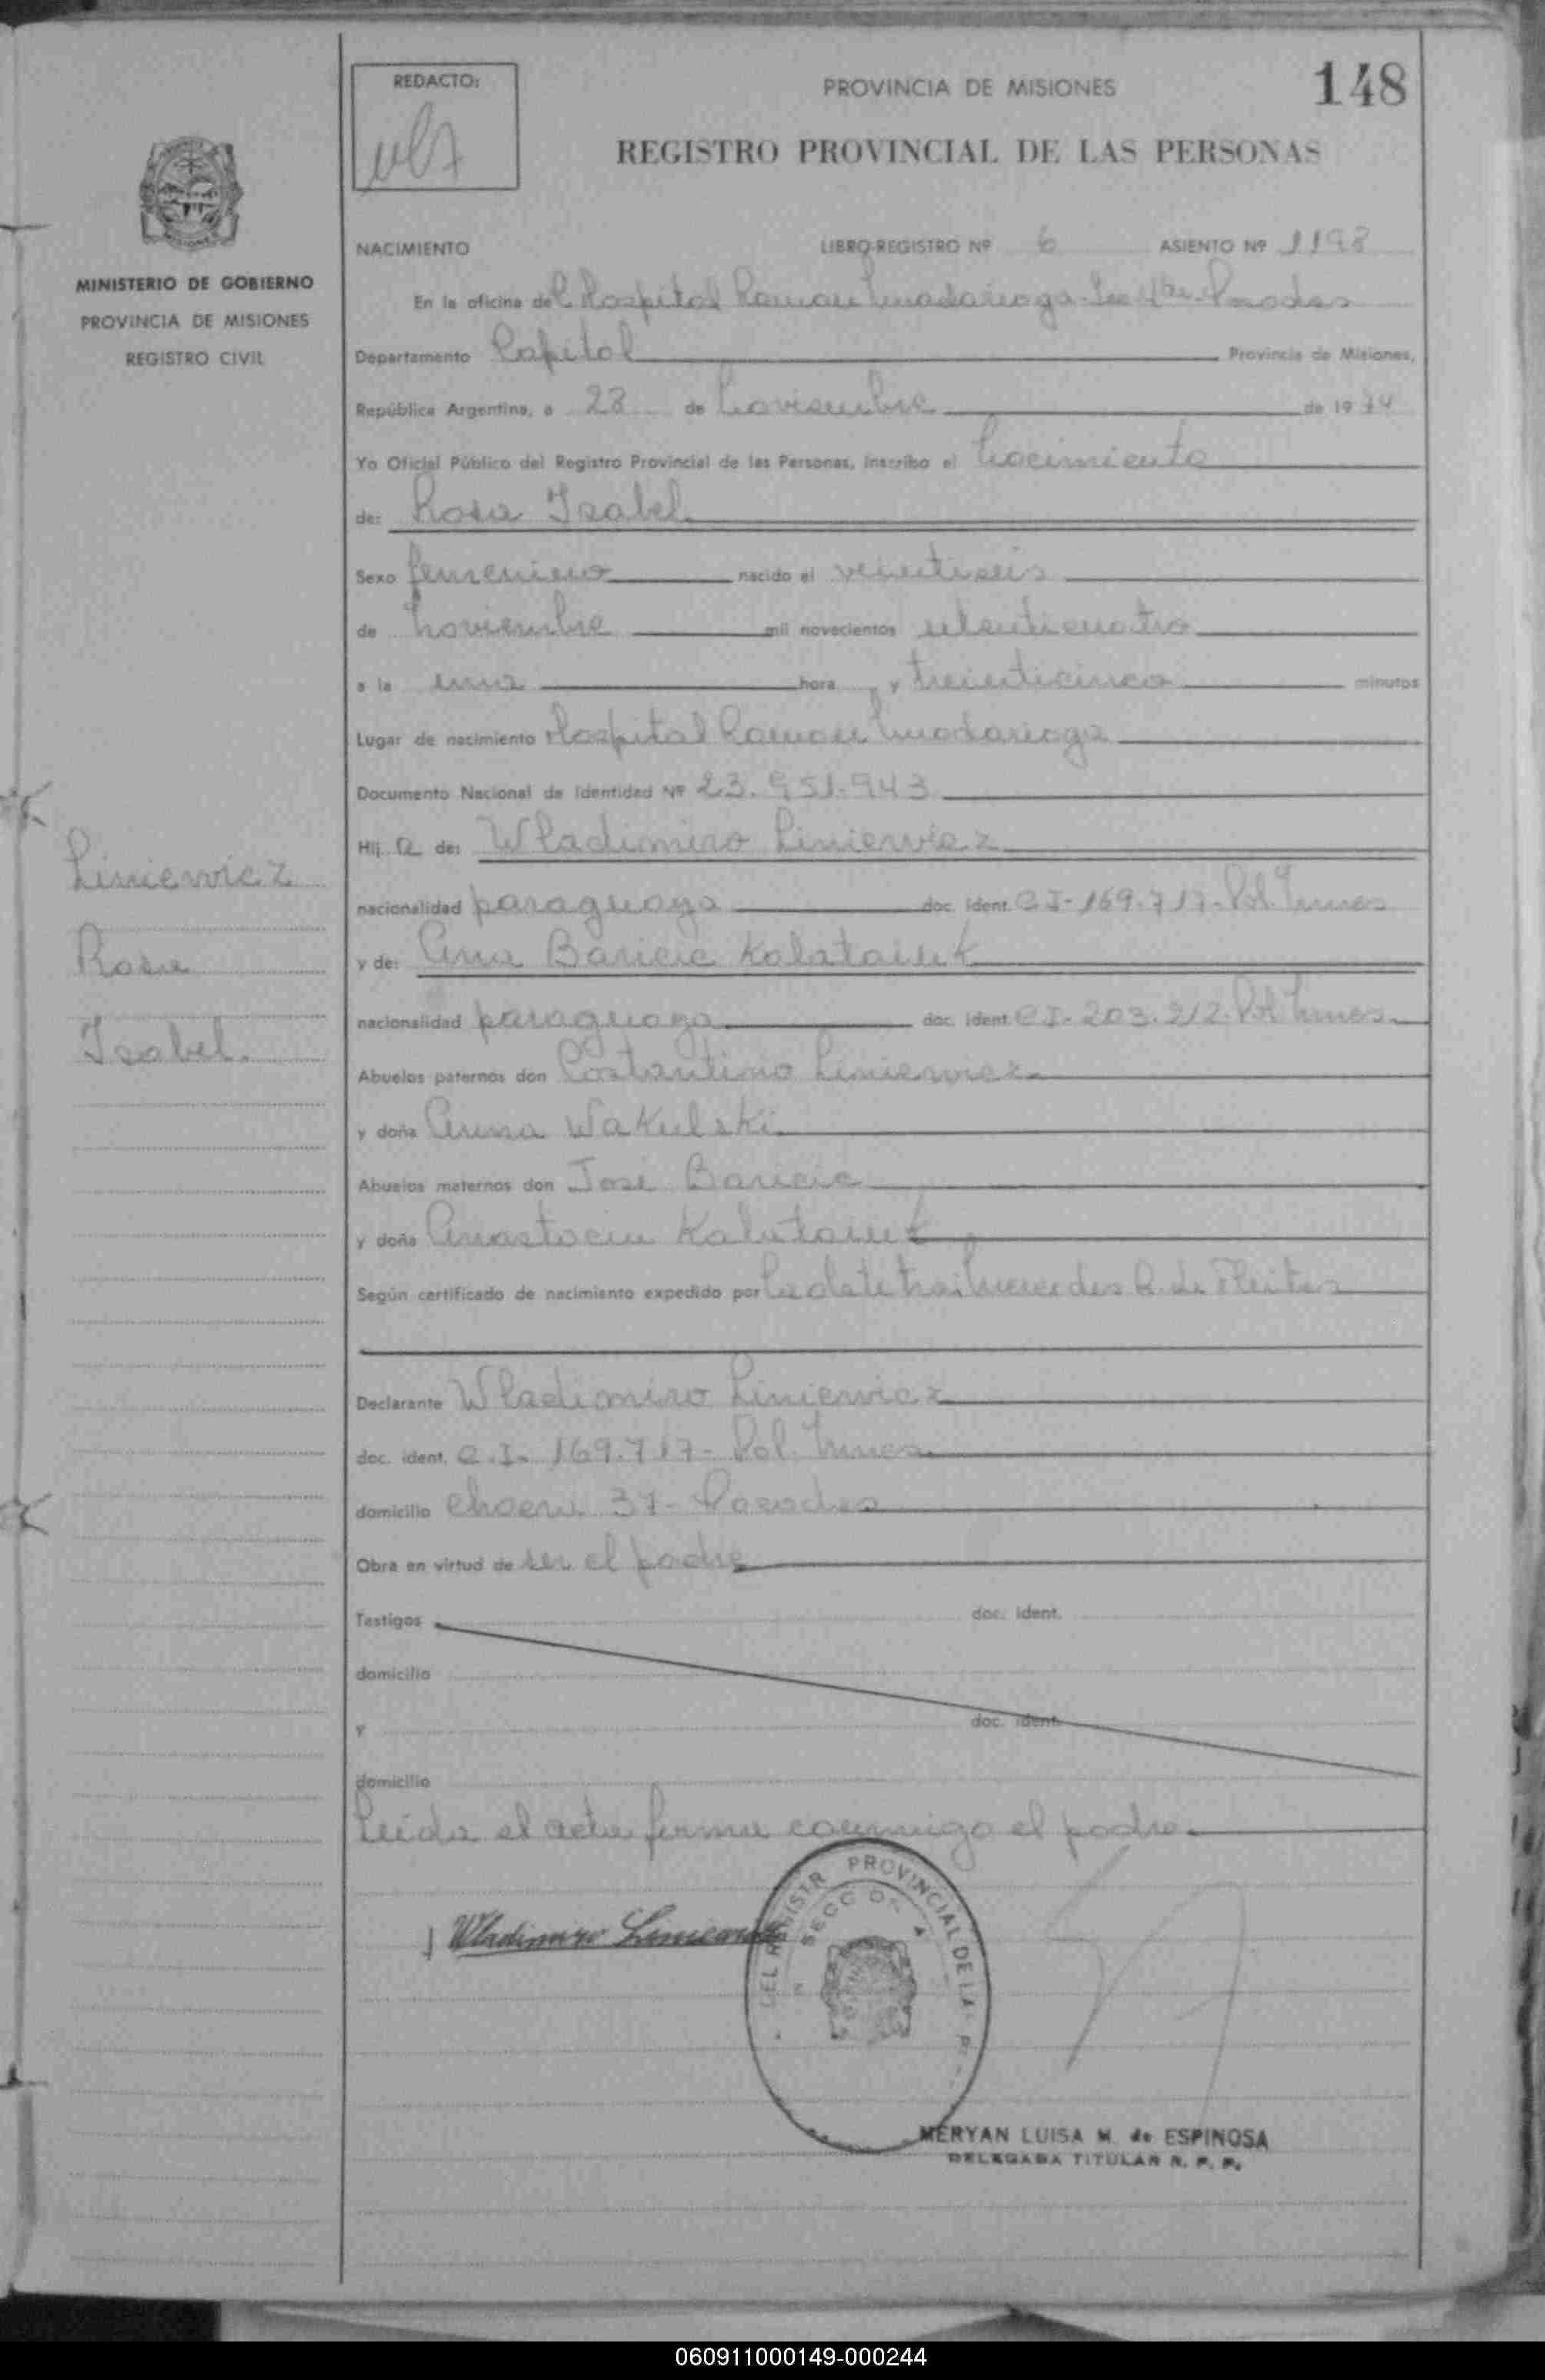 148
REDACTO:
PROVINCIA DE MISIONES
REGISTRO PROVINCIAL DE LAS PERSONAS
MINISTERIO DE GOBIERNO
PROVINCIA DE MISIONES
REGISTRO CIVIL
Liniewicz
Rosa
Isabel.
NACIMIENTO LIBRO-REGISTRO Nº 6 ASIENTO Nº 1198
En la oficina del Hospital Ramon Madariaga Posadas
Departamento Capital Provincia de Misiones,
República Argentina, a 28 de Noviembre de 1974
Yo Oficial Público del Registro Provincial de las Personas, inscribo el Nacimiento
de: Rosa Isabel.
Sexo femenino nacido el veintiseis
de Noviembre mil novecientos setenticuatro
a la una hora y treinticinco minutos
Lugar de nacimiento Hospital Ramon Madariaga
Documento Nacional de Identidad Nº 23.951.943
Hij a de: Wladimiro Liniewicz
nacionalidad paraguaya doc. ident. C.I- 169.717- Pol. Mnes
y de: Ana Baricic Kalataiuk
nacionalidad paraguaya doc. ident. C.I- 203.212. Pol Mnes.
Abuelos paternos don Costantino Liniewicz
y doña Anna Wakulski.
Abuelos maternos don José Baricic
y doña Anastacia Kalataiuk
Según certificado de nacimiento expedido por la obstetra: Mercedes R. de Fleitas
Declarante Wladimiro Liniewicz
doc. ident. C.I- 169.717- Pol. Mnes.
domicilio 37- Posadas
Obra en virtud de ser el padre
Testigos doc. ident.
domicilio
y doc. ident.
domicilio
Leida el acta firma conmigo el padre.
Wladimiro
PROVINCIAL DE LA
MERYAN LUISA M. de ESPINOSA
DELEGADA TITULAR R. P. P.
060911000149-000244